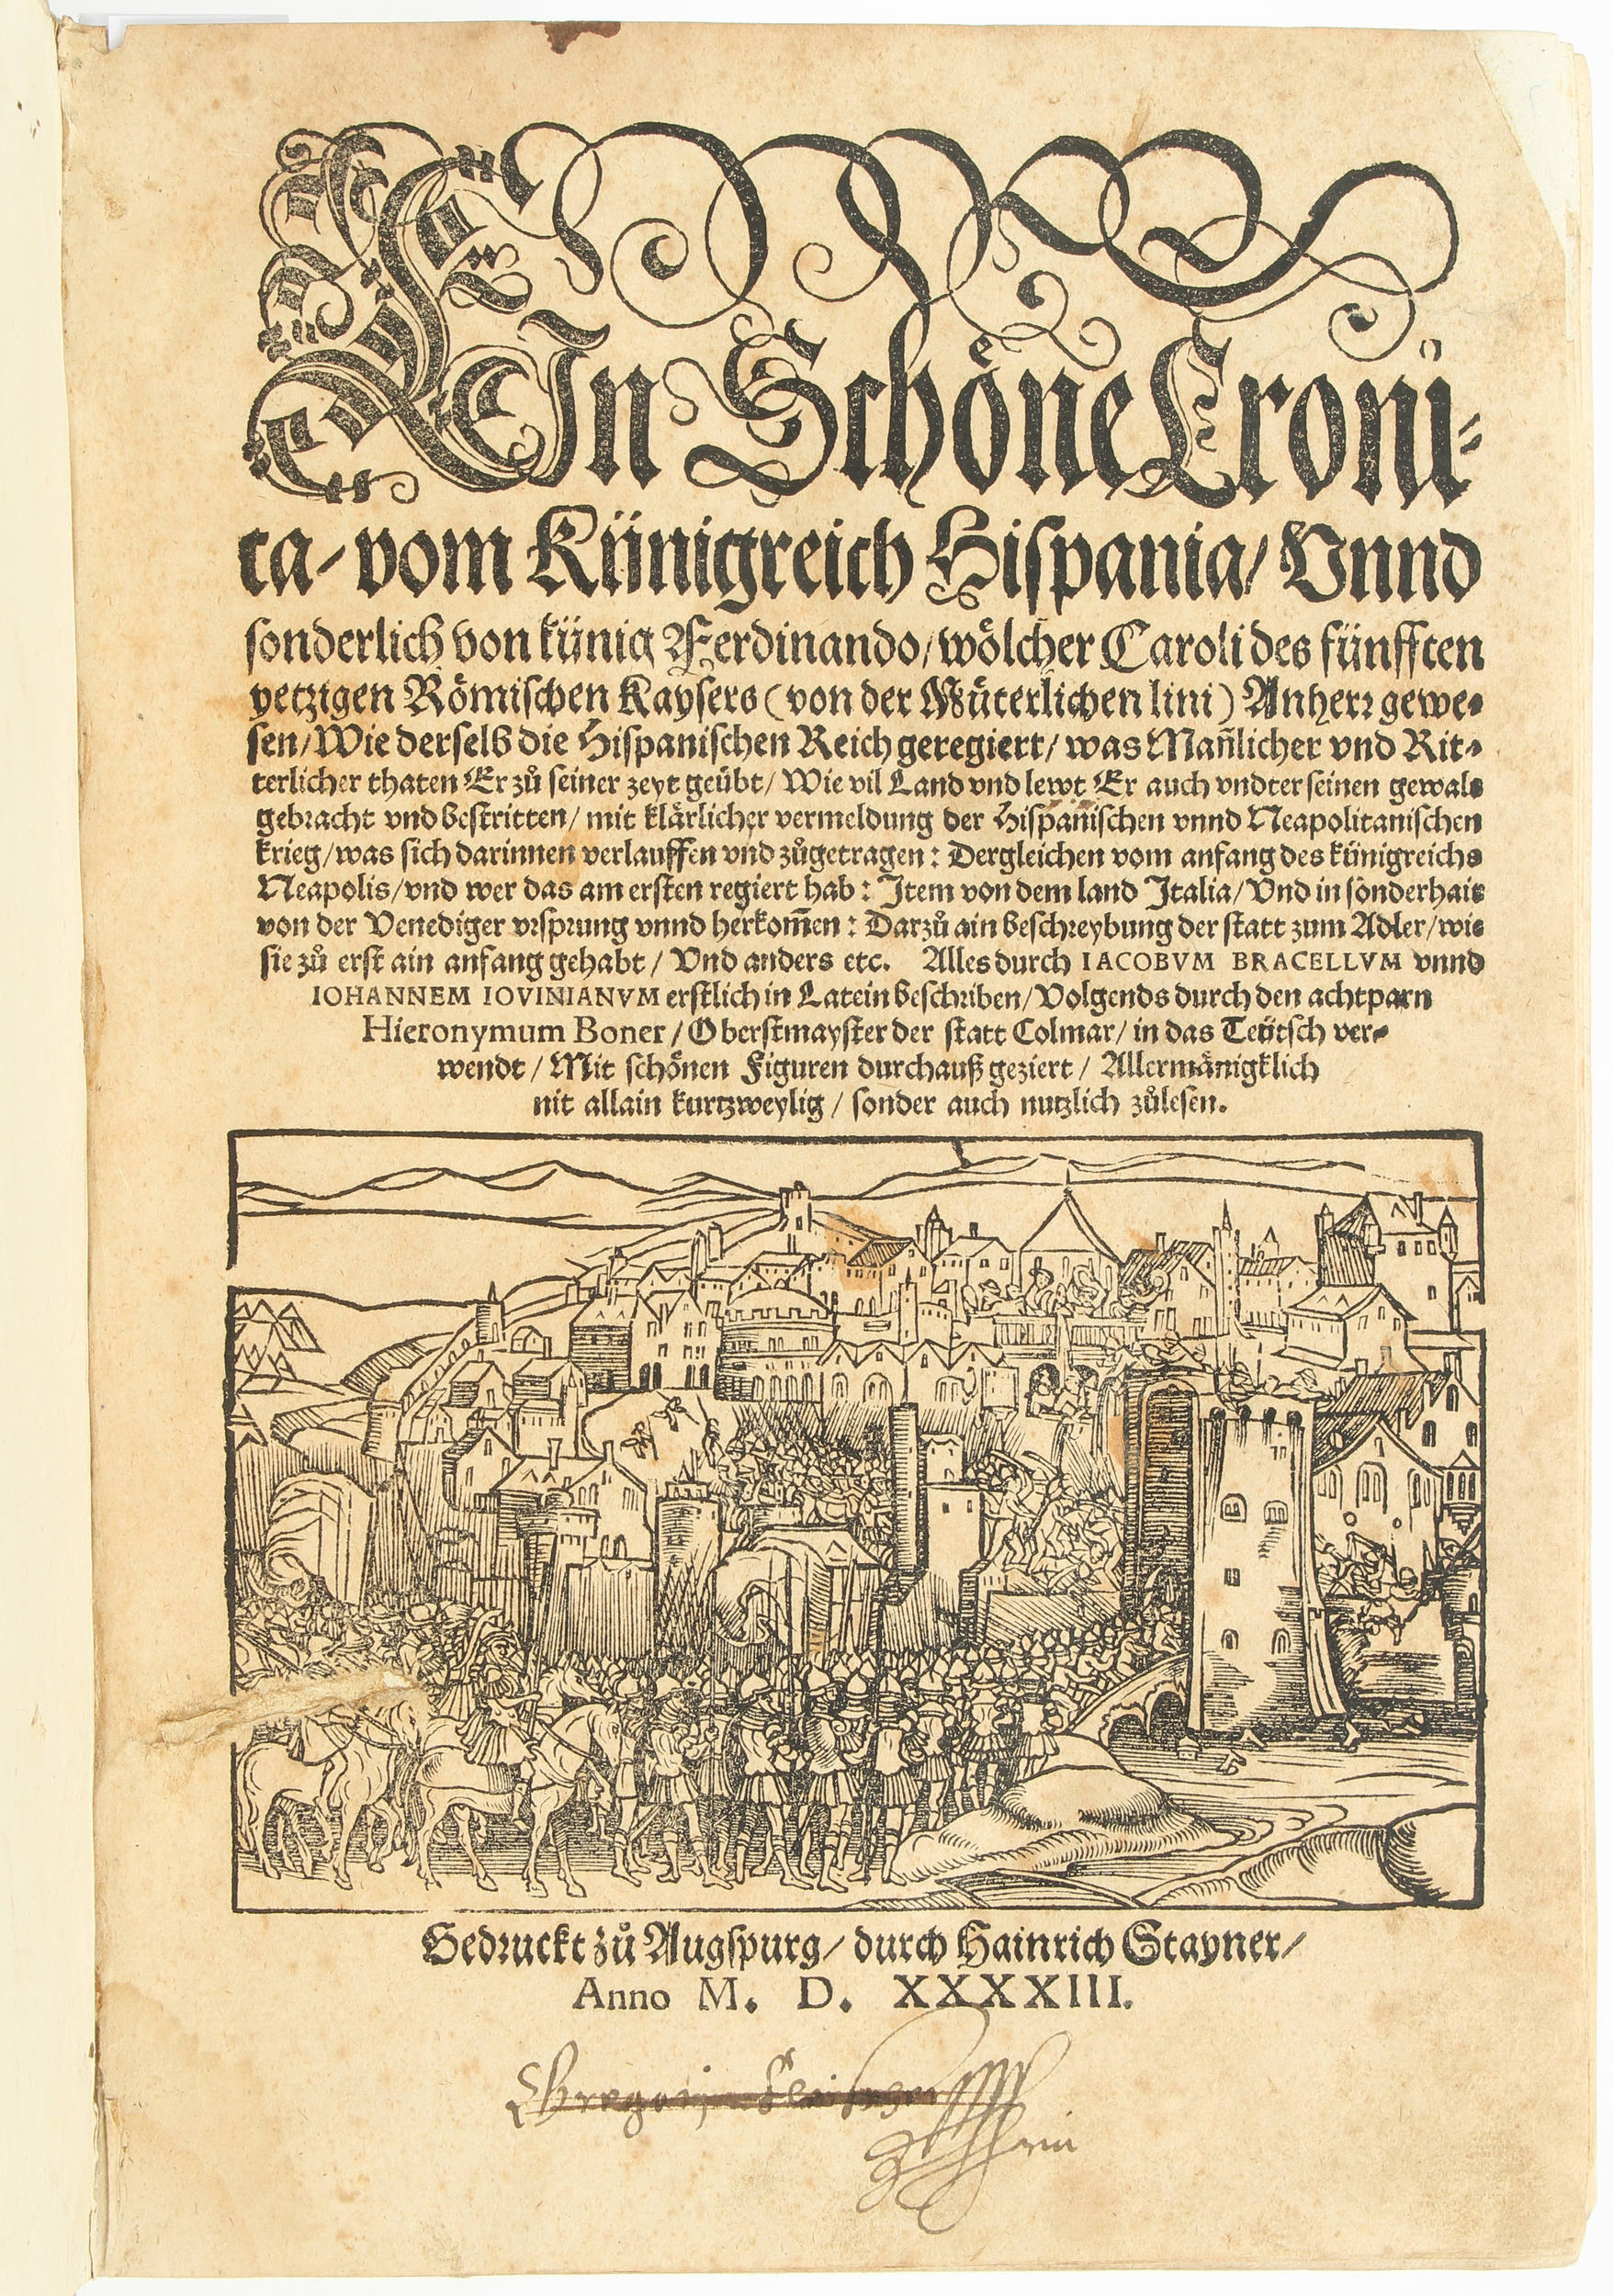 EIn Schöne Croni⸗
ca/ vom Künigreich Hispania/ Vnnd
sonderlich von künig Ferdinando/ wölcher Caroli des fünfften
yetzigen Römischen Kaysers (von der Müterlichen lini) Anherr gewe⸗
sen/ Wie derselb die Hispanischen Reich geregiert/ was Mañlicher vnd Rit⸗
terlicher thaten Er zů seiner zeyt geübt/ Wie vil Land vnd lewt Er auch vndter seinen gewalt
gebracht vnd bestritten/ mit klärlicher vermeldung der Hispanischen vnnd Neapolitanischen
krieg/ was sich darinnen verlauffen vnd zůgetragen: Dergleichen vom anfang des künigreichs
Neapolis/ vnd wer das am ersten regiert hab: Item von dem land Italia/ Vnd in sonderhait
von der Venediger vrsprung vnnd herkom̄en: Darzů ain beschreybung der statt zum Adler/ wie
sie zů erst ain anfang gehabt/ Vnd anders etc. Alles durch IACOBVM BRACELLVM vnnd
IOHANNEM IOVINIANVM erstlich in Latein beschriben/ Volgends durch den achtparn
Hieronymum Boner/ Oberstmayster der statt Colmar/ in das Teütsch ver⸗
wendt/ Mit schönen Figuren durchauß geziert/ Allermänigklich
nit allain kurtzweylig/ sonder auch nutzlich zůlesen.
Gedruckt zů Augspurg/ durch Hainrich Stayner/
Anno M. D. XXXXIII.